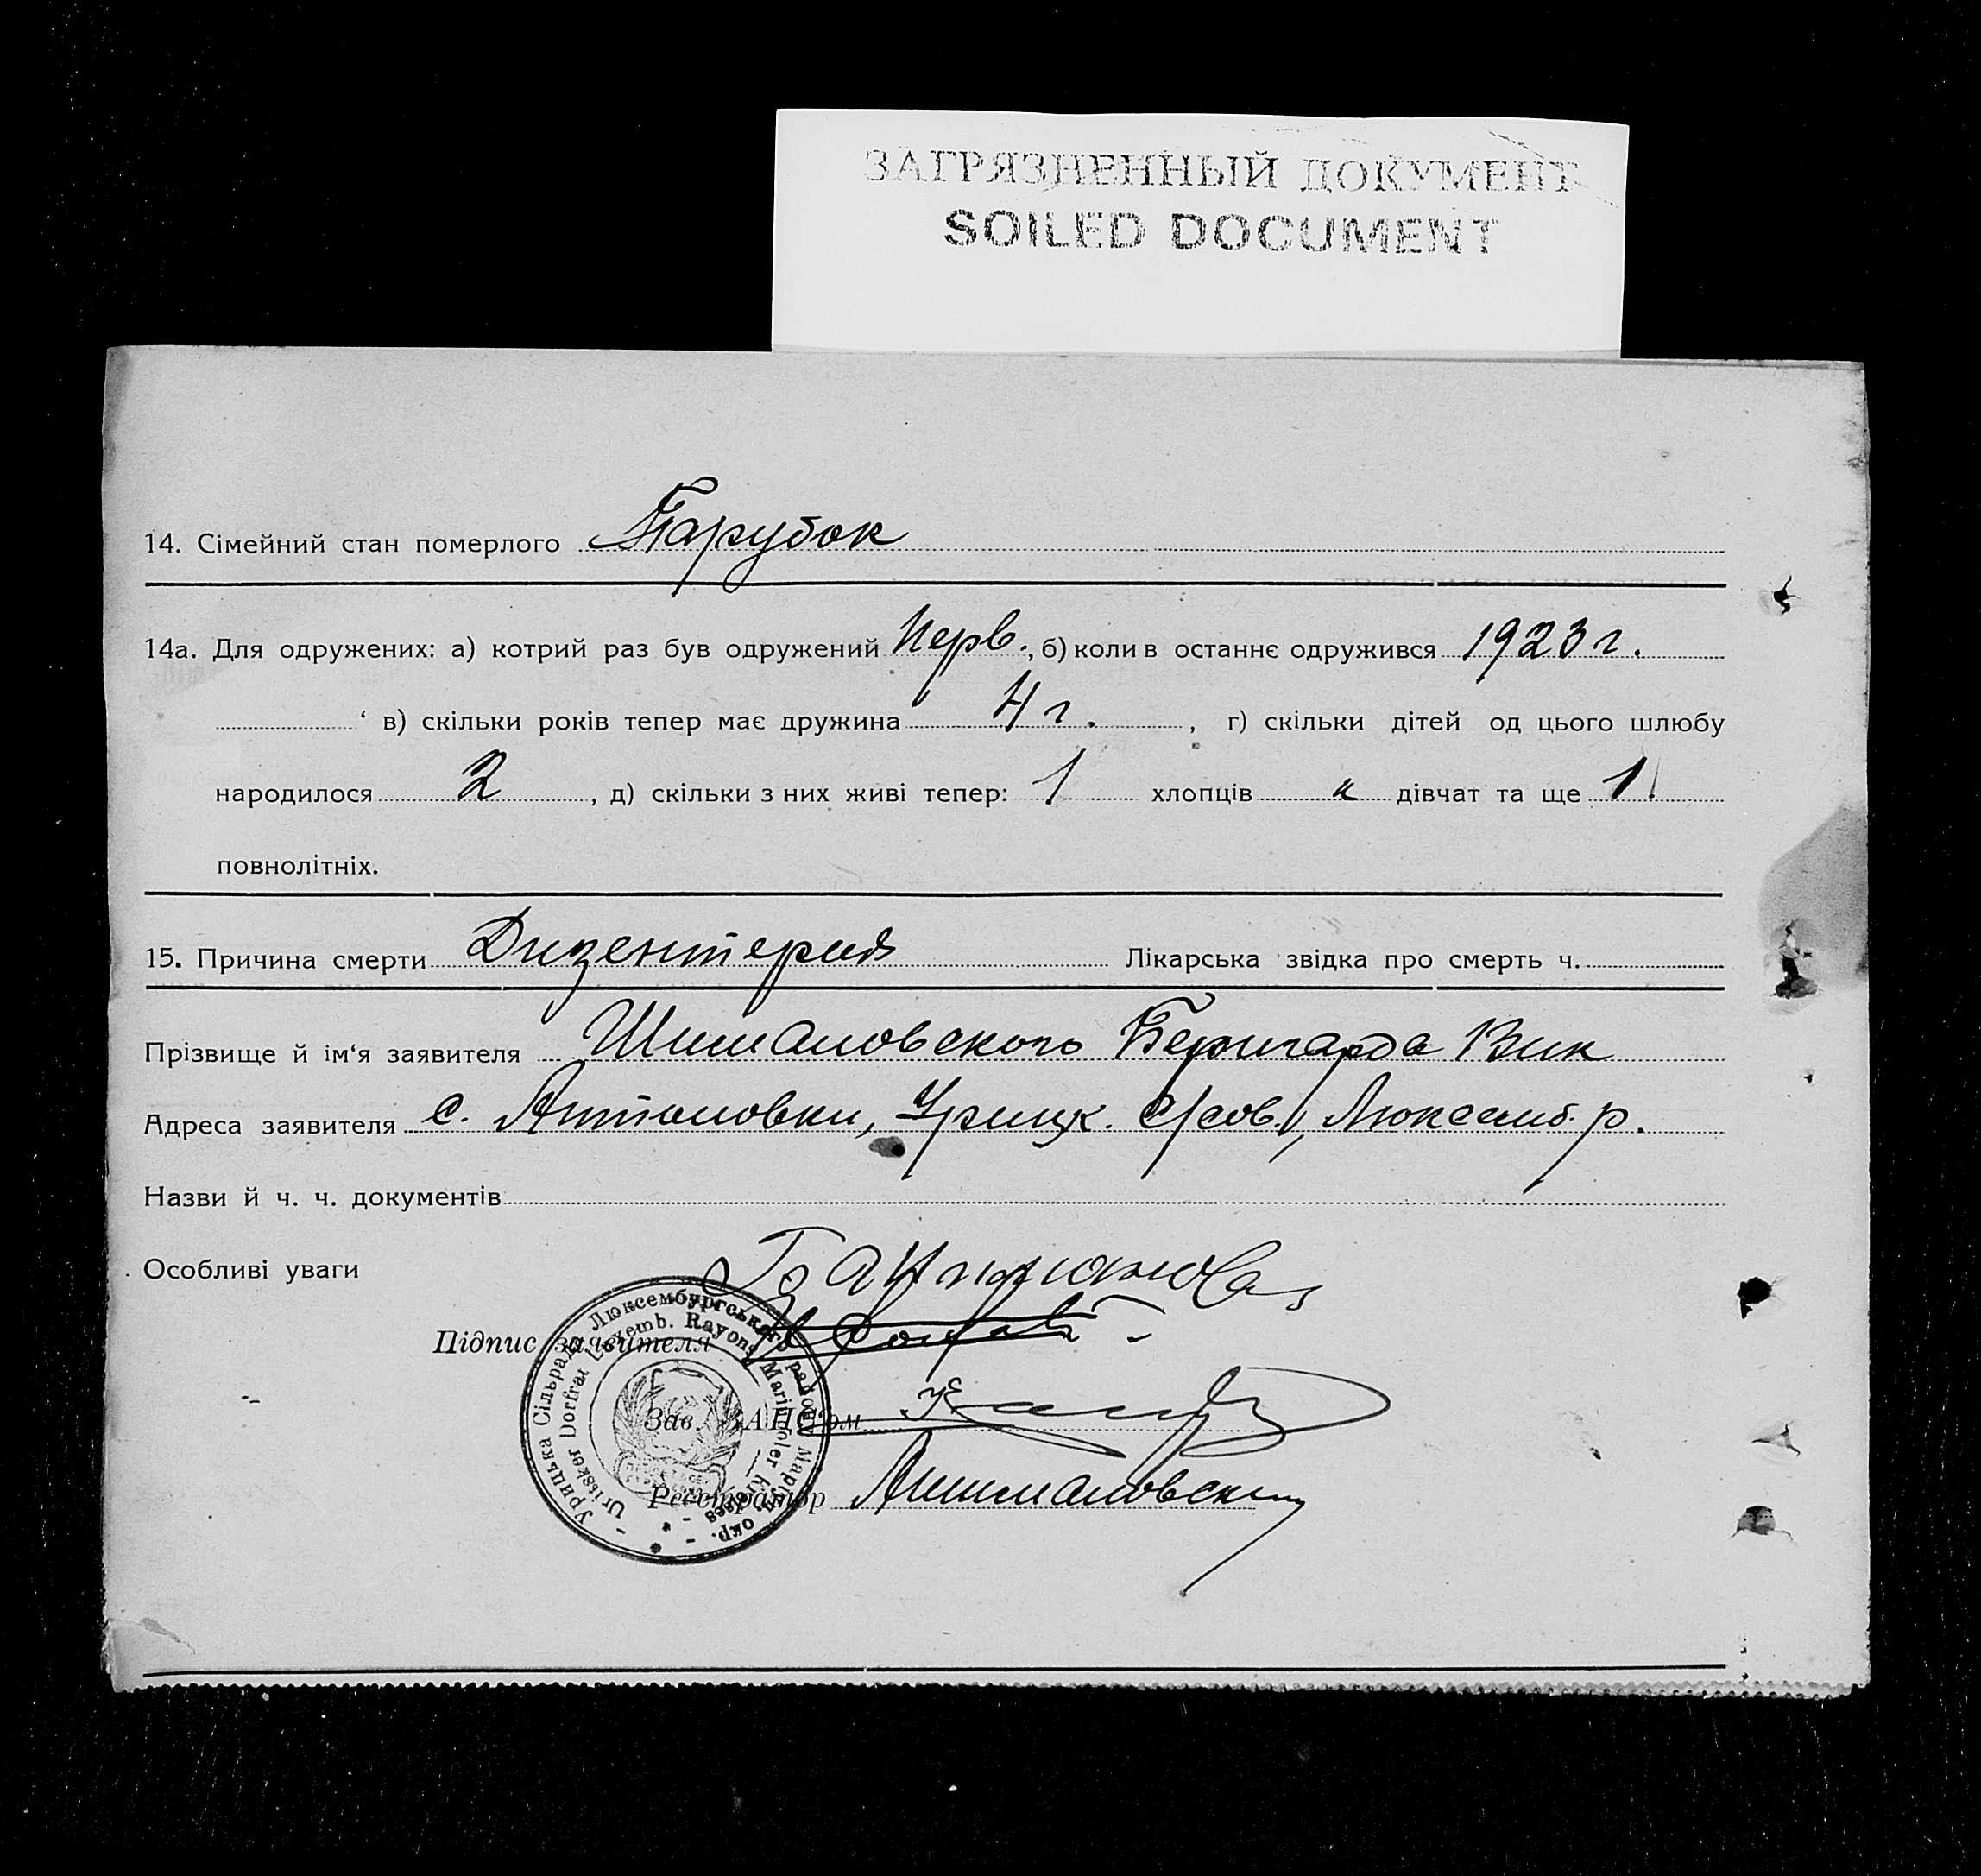 ЗАГРЯЗНЕННЫЙ ДОКУМЕНТ
SOILED DOCUMENT
14. Сімейний стан померлого Парубок
14а. Для одружених: а) котрий раз був одружений Перв., б) коли в останнє одружився 1923 г.
в) скільки років тепер має дружина 4 г. , г) скільки дітей од цього шлюбу
народилося 2 , д) скільки з них живі тепер: 1 хлопців и дівчат та ще 1
повнолітніх.
15. Причина смерти Дизентерия Лікарська звідка про смерть ч.
Прізвище й ім'я заявителя Шимановского Бернгарда Вик
Адреса заявителя с. Антоновки, Урицк. с/сов., Люксемб. р.
Назви й ч. ч. документів
Особливі уваги
Підпис заявителя
Зав. ЗАПС'ом
Реєстратор
Урицька Сільрада Люксембургського району Маріюп. окр.
Uritsker Dorfrat Luxemb. Rayons Mariupoler Kreises